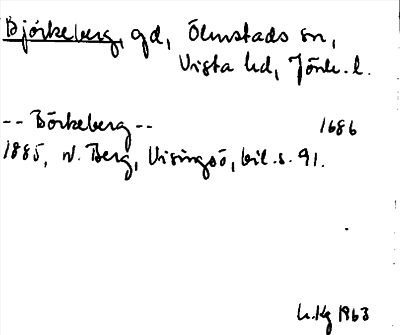 Björkeberg, gd, Ölmstads sn,
Vista hd, Jönk. l.
-- Börkeberg -- 1686
1885, N. Berg, Visingsö, bil. s. 91.
1963